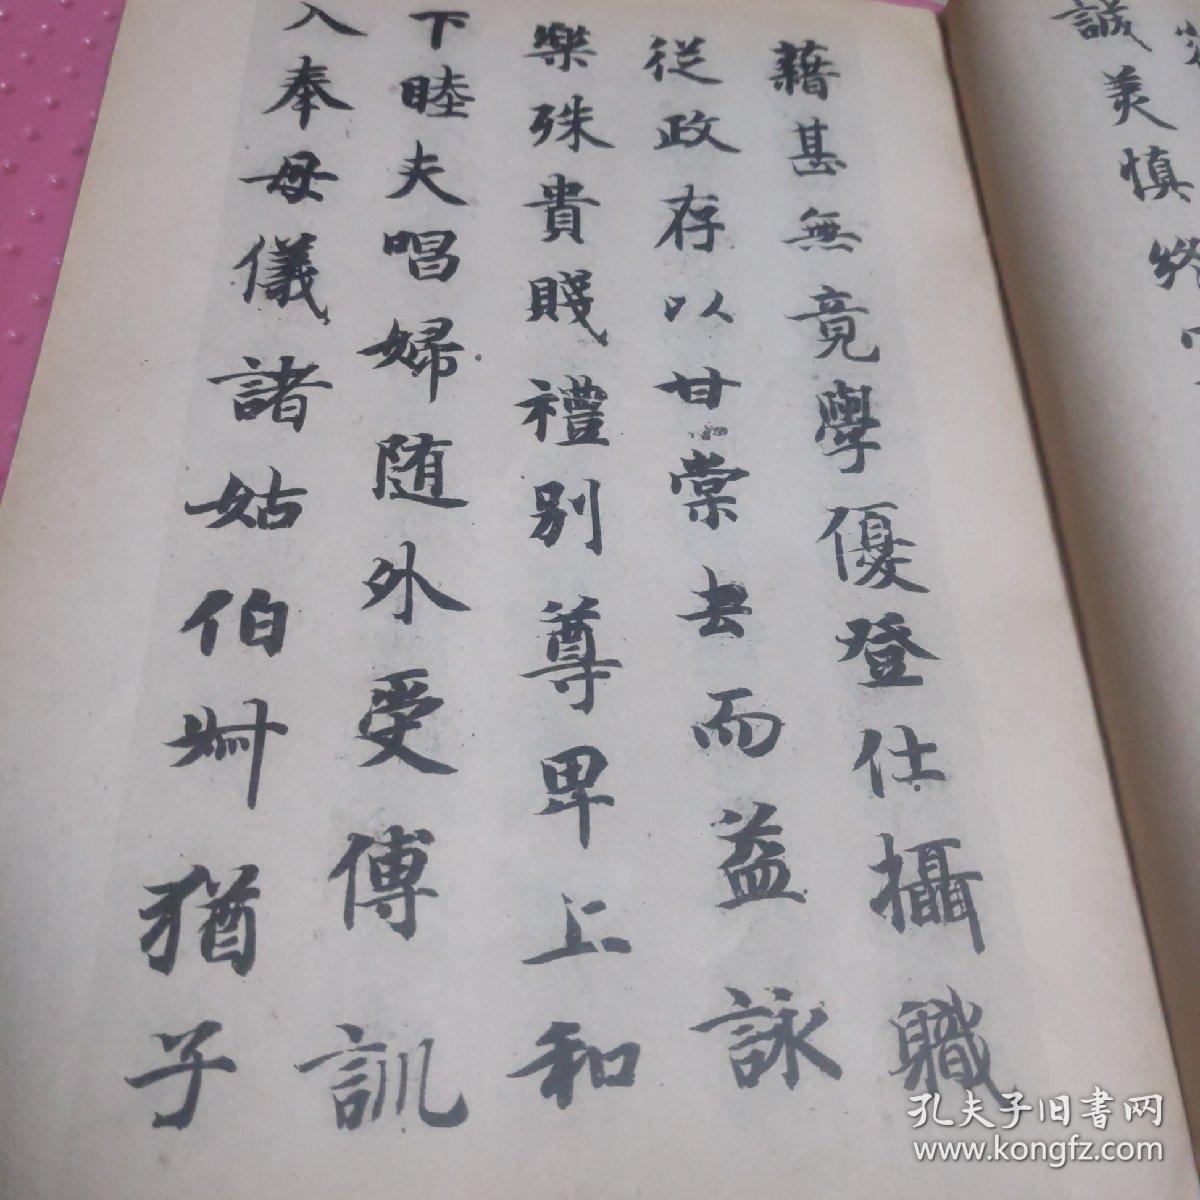 誠美慎終
藉甚無竟學優登仕攝職
從政存以甘棠去而益詠
樂殊貴賤禮別尊卑上和
下睦夫唱婦随外受傅訓
入奉母儀諸姑伯叔猶子
孔夫子旧書网
www.kongfz.com